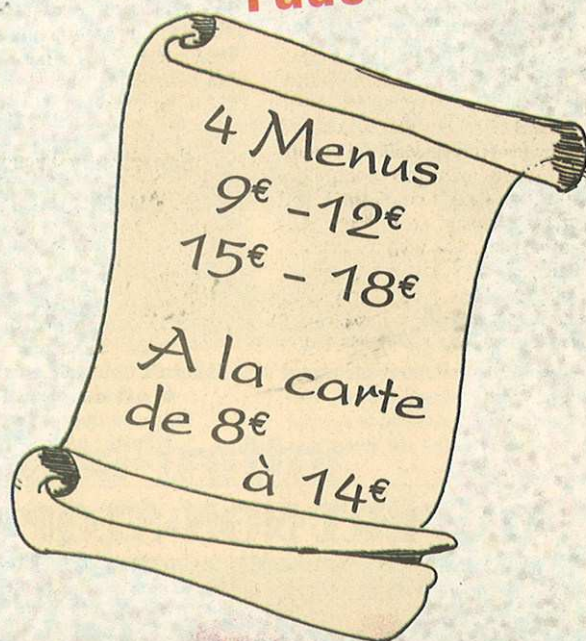 4 Menus
9€ - 12€
15€ - 18€
A la carte
de 8€
à 14€